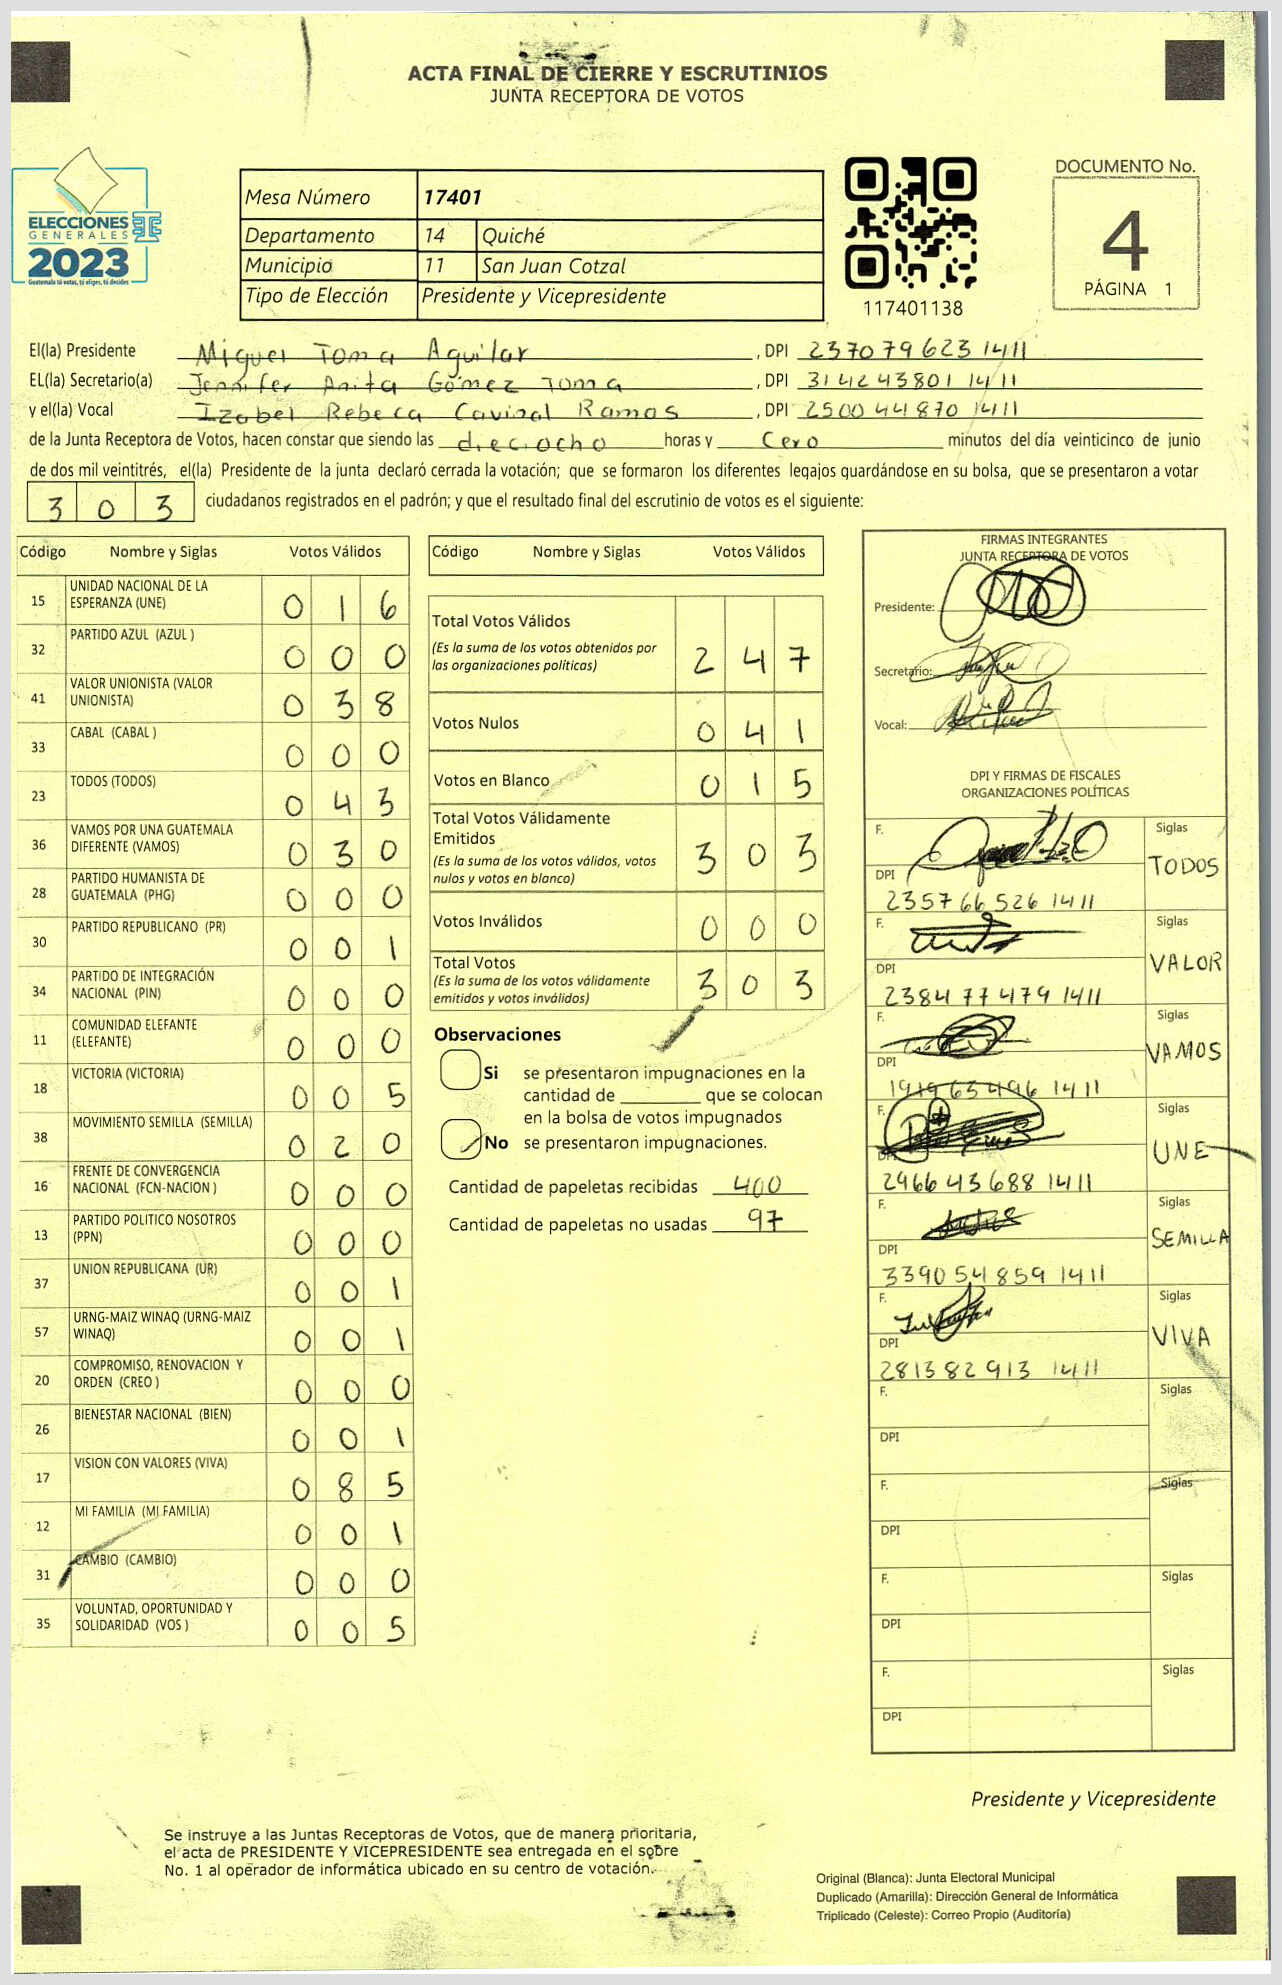 ACTA FINAL DE CIERRE Y ESCRUTINIOS
JUNTA RECEPTORA DE VOTOS
ELECCIONES
GENERALES
2023
Guatemala tú votas, tú eliges, tú decides
Mesa Número 17401
Departamento 14 Quiché
Municipio 11 San Juan Cotzal
Tipo de Elección Presidente y Vicepresidente
117401138
DOCUMENTO No.
4
PÁGINA 1
El(la) Presidente Miguel Toma Aguilar, DPI 237079623 1411
EL(la) Secretario(a) Jennifer Anita Gómez Toma, DPI 314243801 1411
y el(la) Vocal Izabel Rebeca Cavinal Ramos, DPI 250044870 1411
de la Junta Receptora de Votos, hacen constar que siendo las dieciocho horas y Cero minutos del día veinticinco de junio
de dos mil veintitrés, el(la) Presidente de la junta declaró cerrada la votación; que se formaron los diferentes legajos guardándose en su bolsa, que se presentaron a votar
303 ciudadanos registrados en el padrón; y que el resultado final del escrutinio de votos es el siguiente:
Código Nombre y Siglas Votos Válidos
15 UNIDAD NACIONAL DE LA
ESPERANZA (UNE) 016
32 PARTIDO AZUL (AZUL ) 000
41 VALOR UNIONISTA (VALOR
UNIONISTA) 038
33 CABAL (CABAL ) 000
23 TODOS (TODOS) 043
36 VAMOS POR UNA GUATEMALA
DIFERENTE (VAMOS) 030
28 PARTIDO HUMANISTA DE
GUATEMALA (PHG) 000
30 PARTIDO REPUBLICANO (PR) 001
34 PARTIDO DE INTEGRACIÓN
NACIONAL (PIN) 000
11 COMUNIDAD ELEFANTE
(ELEFANTE) 000
18 VICTORIA (VICTORIA) 005
38 MOVIMIENTO SEMILLA (SEMILLA) 020
16 FRENTE DE CONVERGENCIA
NACIONAL (FCN-NACION ) 000
13 PARTIDO POLITICO NOSOTROS
(PPN) 000
37 UNION REPUBLICANA (UR) 001
57 URNG-MAIZ WINAQ (URNG-MAIZ
WINAQ) 001
20 COMPROMISO, RENOVACION Y
ORDEN (CREO ) 000
26 BIENESTAR NACIONAL (BIEN) 001
17 VISION CON VALORES (VIVA) 085
12 MI FAMILIA (MI FAMILIA) 001
31 CAMBIO (CAMBIO) 000
35 VOLUNTAD, OPORTUNIDAD Y
SOLIDARIDAD (VOS ) 005
Código Nombre y Siglas Votos Válidos
Total Votos Válidos
(Es la suma de los votos obtenidos por
las organizaciones políticas) 247
Votos Nulos 041
Votos en Blanco 015
Total Votos Válidamente
Emitidos
(Es la suma de los votos válidos, votos
nulos y votos en blanco) 303
Votos Inválidos 000
Total Votos
(Es la suma de los votos válidamente
emitidos y votos inválidos) 303
Observaciones
Si se presentaron impugnaciones en la
cantidad de ________ que se colocan
en la bolsa de votos impugnados
No se presentaron impugnaciones.
Cantidad de papeletas recibidas 400
Cantidad de papeletas no usadas 97
FIRMAS INTEGRANTES
JUNTA RECEPTORA DE VOTOS
Presidente:
Secretario:
Vocal:
DPI Y FIRMAS DE FISCALES
ORGANIZACIONES POLÍTICAS
F. Siglas
TODOS
DPI
235766526 1411
F. Siglas
VALOR
DPI
238477479 1411
F. Siglas
VAMOS
DPI
191963496 1411
F. Siglas
UNE
DPI
296643688 1411
F. Siglas
SEMILLA
DPI
339054859 1411
F. Siglas
VIVA
DPI
281382913 1411
F. Siglas
DPI
F. Siglas
DPI
F. Siglas
DPI
F. Siglas
DPI
Presidente y Vicepresidente
Se instruye a las Juntas Receptoras de Votos, que de manera prioritaria,
el acta de PRESIDENTE Y VICEPRESIDENTE sea entregada en el sobre
No. 1 al operador de informática ubicado en su centro de votación.
Original (Blanca): Junta Electoral Municipal
Duplicado (Amarilla): Dirección General de Informática
Triplicado (Celeste): Correo Propio (Auditoría)